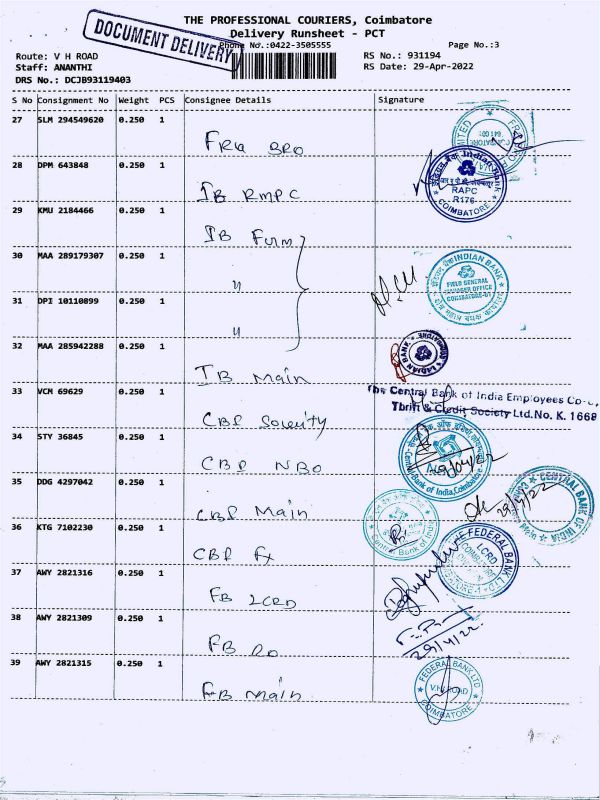 THE PROFESSIONAL COURIERS, Coimbatore
Delivery Runsheet - PCT
DOCUMENT DELIVERY
Phone No.:0422-3505555
Page No.:3
Route: V H ROAD
RS No.: 931194
Staff: ANANTHI
RS Date: 29-Apr-2022
DRS No.: DCJB93119403
S No Consignment No Weight PCS Consignee Details Signature
27 SLM 294549620 0.250 1
28 DPM 643848 0.250 1 IB RMPC
Indian Bank
RAPC
R176
COIMBATORE
29 KMU 2184466 0.250 1 IB Fum
30 MAA 289179307 0.250 1 "
INDIAN BANK
FIELD GENERAL
MANAGER OFFICE
COIMBATORE-01
31 DPI 10110899 0.250 1 "
32 MAA 285942288 0.250 1 IB Main
INDIAN BANK
COIMBATORE
33 VCM 69629 0.250 1 CBI Society
The Central Bank of India Employees Co-o,
Thrift & Credit Society Ltd. No. K. 1668
34 STY 36845 0.250 1 CBI NBO
Central Bank of India, Coimbatore
29/04/22
35 DDG 4297042 0.250 1 CBI Main
29/4/22
CENTRAL BANK OF INDIA
36 KTG 7102230 0.250 1 CBI Fx
Central Bank of India
37 AWY 2821316 0.250 1 FB LCRD
THE FEDERAL BANK LTD
LCRD
COIMBATORE-1
38 AWY 2821309 0.250 1 FB DO
29/4/22
39 AWY 2821315 0.250 1 FB Main
FEDERAL BANK LTD
V.H. ROAD
COIMBATORE